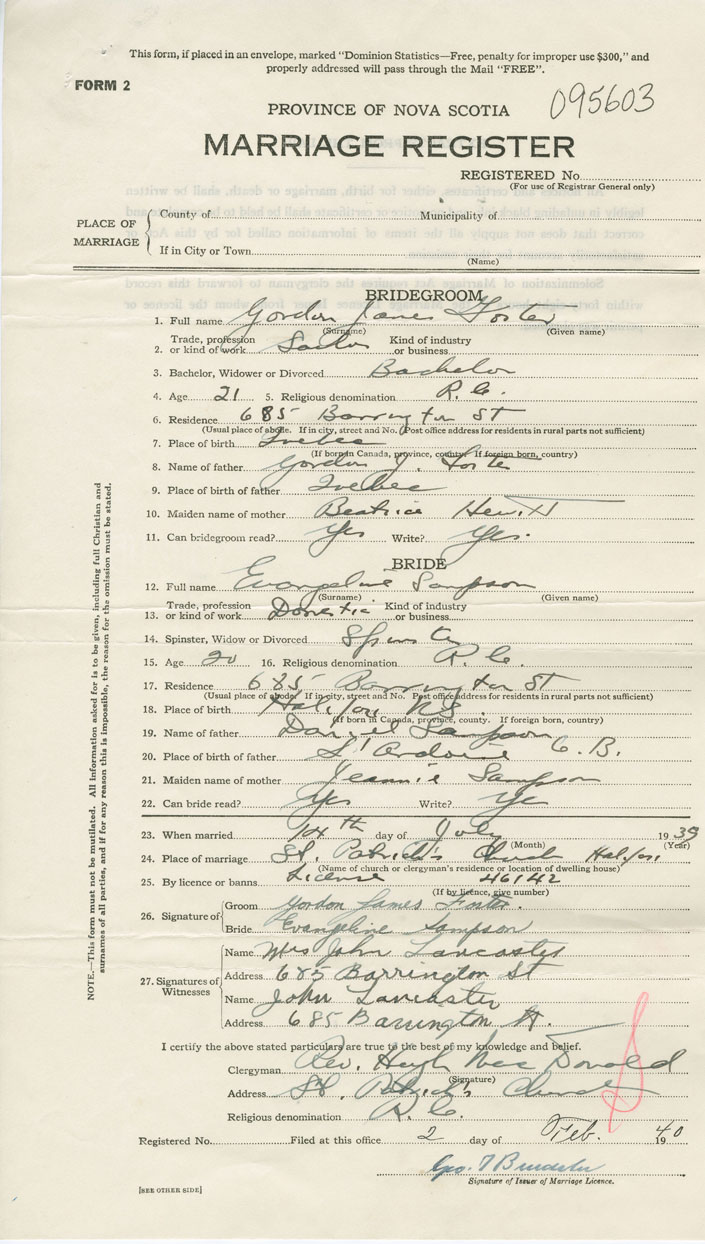 This form, if placed in an envelope, marked "Dominion Statistics—Free, penalty for improper use $300," and
properly addressed will pass through the Mail "FREE".
FORM 2
095603
PROVINCE OF NOVA SCOTIA
MARRIAGE REGISTER
REGISTERED No.
(For use of Registrar General only)
PLACE OF MARRIAGE
County of Municipality of
If in City or Town
(Name)
BRIDEGROOM
1. Full name Gordon James Foster
(Surname) (Given name)
Trade, profession Kind of industry
2. or kind of work Sailor or business
3. Bachelor, Widower or Divorced Bachelor
4. Age 21 5. Religious denomination R.C.
6. Residence 685 Barrington St
(Usual place of abode. If in city, street and No. Post office address for residents in rural parts not sufficient)
7. Place of birth Quebec
(If born in Canada, province, county. If foreign born, country)
8. Name of father Gordon J. Foster
9. Place of birth of father Quebec
10. Maiden name of mother Beatrice
11. Can bridegroom read? Yes Write? Yes.
BRIDE
12. Full name Evangeline Sampson
(Surname) (Given name)
Trade, profession Kind of industry
13. or kind of work Domestic or business
14. Spinster, Widow or Divorced Spinster
15. Age 20 16. Religious denomination R.C.
17. Residence 685 Barrington St
(Usual place of abode. If in city, street and No. Post office address for residents in rural parts not sufficient)
18. Place of birth Halifax N.S.
(If born in Canada, province, county. If foreign born, country)
19. Name of father Daniel Sampson
20. Place of birth of father L'Ardoise C.B.
21. Maiden name of mother Jeannie Sampson
22. Can bride read? Yes Write? Yes
23. When married 14th day of July 1939
(Month) (Year)
24. Place of marriage St. Patrick's Church Halifax
(Name of church or clergyman's residence or location of dwelling house)
25. By licence or banns License 46142
(If by licence, give number)
26. Signature of Groom Gordon James Foster.
Bride Evangeline Sampson
27. Signatures of Witnesses
Name Mrs John Lancaster
Address 685 Barrington St
Name John Lancaster
Address 685 Barrington St.
I certify the above stated particulars are true to the best of my knowledge and belief.
Clergyman Rev. Hugh MacDonald
(Signature)
Address St. Patrick's Church
Religious denomination R.C.
Registered No. Filed at this office 2 day of Feb. 1940
Geo.
Signature of Issuer of Marriage Licence.
[SEE OTHER SIDE]
NOTE.—This form must not be mutilated. All information asked for is to be given, including full Christian and
surnames of all parties, and if for any reason this is impossible, the reason for the omission must be stated.